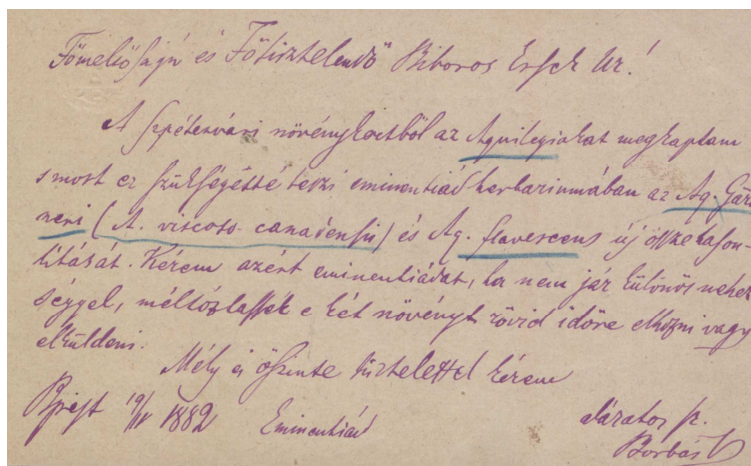 Főmeltóságú és Főtisztelendő Biboros Érsek Úr!
A szpétervári növénykertből az Aquilegiákat megkaptam
s most ez szükségessé teszi eminentiád herbariumában az Aq. Gärt
neri (A. viscoso-canadensis) és Aq. flavescens új összehason-
lítását. Kérem azért eminentiádat, ha nem jár különös nehéz
séggel, méltóztassék e két növényt rövid időre elhozni vagy
elküldeni.
Mély és őszinte tisztelettel kérem
Bpest 1882 Eminentiád alázatos sz.
Borbás V